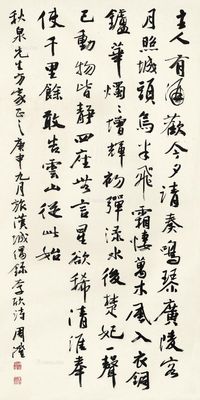 主人有酒歡今夕請奏鳴琴廣陵客
月照城頭烏半飛霜淒萬木風入衣銅
鑪華燭々增輝初彈淥水後楚妃一聲
已動物皆靜四座無言星欲稀清淮奉
使千里餘敢告雲山從此始
秋泉先生方家正之庚申九月旅漢城偶錄李頎詩周澄